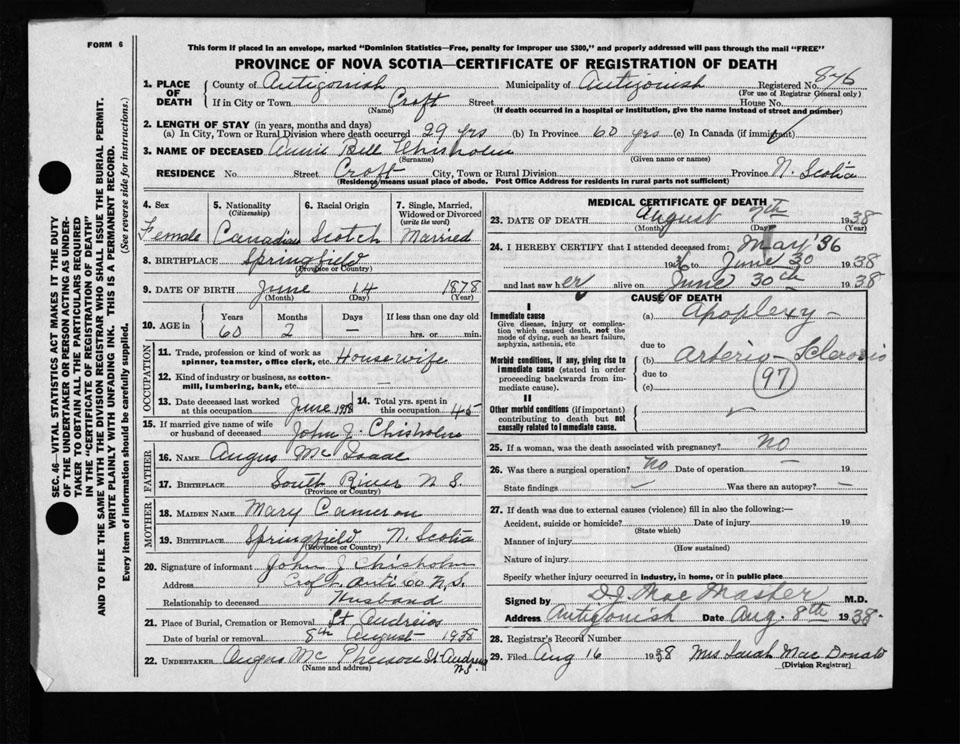 FORM 6
This form if placed in an envelope, marked "Dominion Statistics—Free, penalty for improper use $300," and properly addressed will pass through the mail "FREE"
PROVINCE OF NOVA SCOTIA—CERTIFICATE OF REGISTRATION OF DEATH
1. PLACE OF DEATH County of Antigonish Municipality of Antigonish Registered No. 876
(For use of Registrar General only)
If in City or Town Croft Street House No.
(Name) (If death occurred in a hospital or institution, give the name instead of street and number)
2. LENGTH OF STAY (in years, months and days)
(a) In City, Town or Rural Division where death occurred 29 yrs (b) In Province 60 yrs (c) In Canada (if immigrant)
3. NAME OF DECEASED Annie Bell Chisholm
(Surname) (Given name or names)
RESIDENCE No Street Croft City, Town or Rural Division Province N. Scotia
(Residence means usual place of abode. Post Office Address for residents in rural parts not sufficient)
4. Sex 5. Nationality (Citizenship) 6. Racial Origin 7. Single, Married, Widowed or Divorced (write the word)
Female Canadian Scotch Married
8. BIRTHPLACE Springfield
(Province or Country)
9. DATE OF BIRTH June 14 1878
(Month) (Day) (Year)
10. AGE in Years Months Days If less than one day old
60 2 — hrs. or min.
OCCUPATION
11. Trade, profession or kind of work as spinner, teamster, office clerk, etc. Housewife
12. Kind of industry or business, as cotton-mill, lumbering, bank, etc. —
13. Date deceased last worked at this occupation June 1938 14. Total yrs. spent in this occupation 45
15. If married give name of wife or husband of deceased John J. Chisholm
FATHER
16. NAME Angus McIsaac
17. BIRTHPLACE South River N.S.
(Province or Country)
MOTHER
18. MAIDEN NAME Mary Cameron
19. BIRTHPLACE Springfield N. Scotia
(Province or Country)
20. Signature of informant John J Chisholm
Address Croft Anti Co N.S.
Relationship to deceased Husband
21. Place of Burial, Cremation or Removal St Andrews
Date of burial or removal 8th August 1938
22. UNDERTAKER Angus McPherson St Andrews N.S.
(Name and address)
MEDICAL CERTIFICATE OF DEATH
23. DATE OF DEATH August 7th 1938
(Month) (Day) (Year)
24. I HEREBY CERTIFY that I attended deceased from: May '36
1936 to June 30 1938
and last saw her alive on June 30th 1938
CAUSE OF DEATH
I
Immediate cause
Give disease, injury or complication which caused death, not the mode of dying, such as heart failure, asphyxia, asthenia, etc
(a) Apoplexy —
due to
Morbid conditions, if any, giving rise to immediate cause (stated in order proceeding backwards from immediate cause).
(b) Arterio-Sclerosis
due to
(c)
97
II
Other morbid conditions (if important) contributing to death but not causally related to immediate cause.
25. If a woman, was the death associated with pregnancy? No
26. Was there a surgical operation? No Date of operation — 19
State findings Was there an autopsy? —
27. If death was due to external causes (violence) fill in also the following:—
Accident, suicide or homicide? Date of injury 19
(State which)
Manner of injury
(How sustained)
Nature of injury
Specify whether injury occurred in industry, in home, or in public place
Signed by D J MacMaster M.D.
Address Antigonish Date Aug. 8th 1938
28. Registrar's Record Number
29. Filed Aug 16 1938 Mrs Sarah MacDonald
(Division Registrar)
SEC. 46—VITAL STATISTICS ACT MAKES IT THE DUTY
OF THE UNDERTAKER OR PERSON ACTING AS UNDER-
TAKER TO OBTAIN ALL THE PARTICULARS REQUIRED
IN THE "CERTIFICATE OF REGISTRATION OF DEATH"
AND TO FILE THE SAME WITH THE DIVISION REGISTRAR WHO SHALL ISSUE THE BURIAL PERMIT.
WRITE PLAINLY WITH UNFADING INK. THIS IS A PERMANENT RECORD.
Every item of information should be carefully supplied. (See reverse side for instructions.)